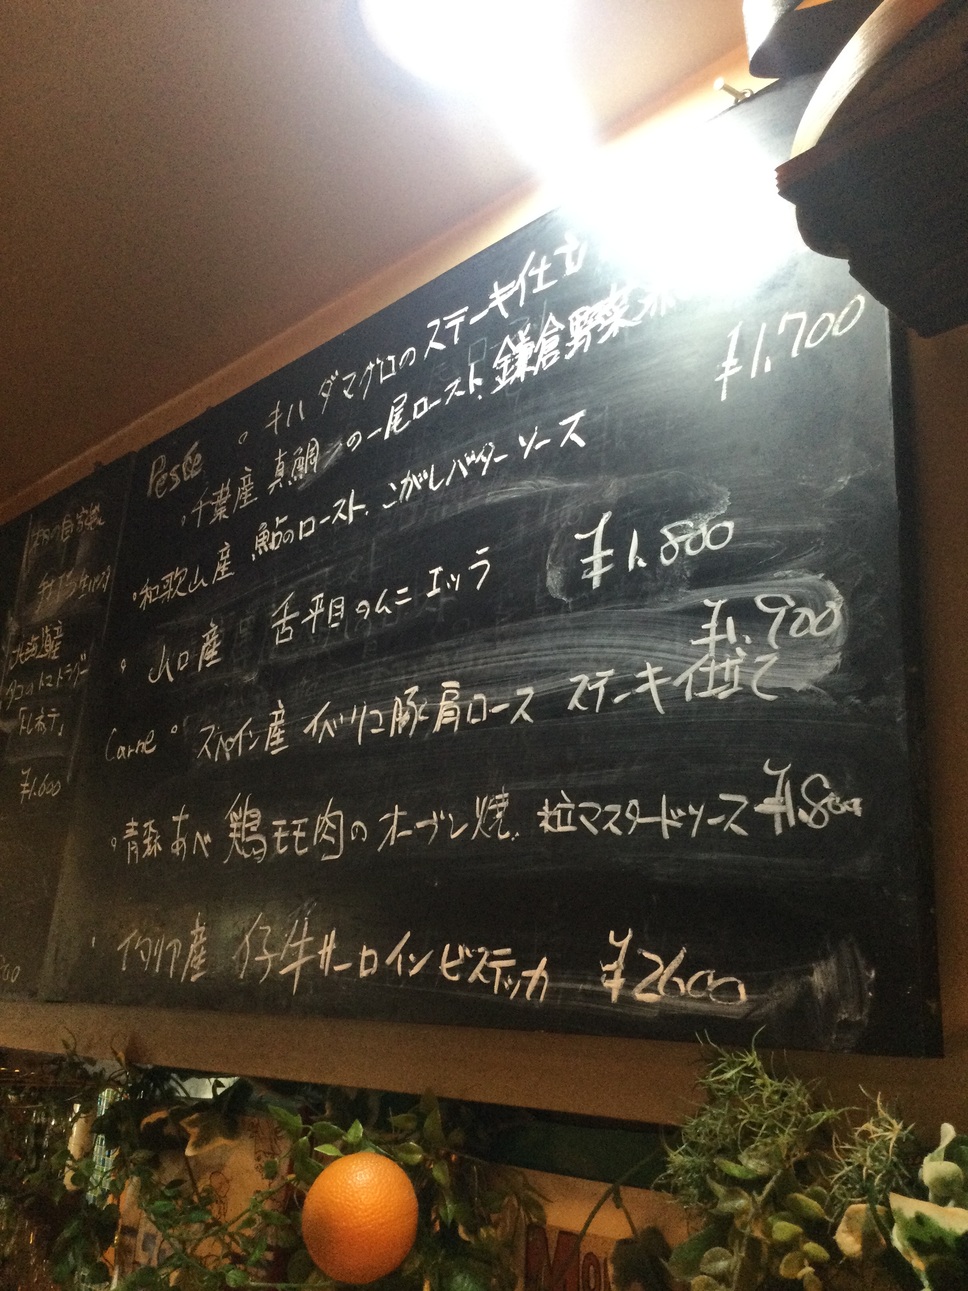 Pesce
。キハダマグロのステーキ仕立
・千葉産 真鯛の一尾ロースト、鎌倉野菜添
¥1,700
・和歌山産 鮎のロースト、こがしバターソース
¥1,800
・山口産 舌平目のムニエッラ
¥1,900
Carne 。スペイン産 イベリコ豚肩ロース ステーキ仕立て
。青森あべ鶏モモ肉のオーブン焼、粒マスタードソース ¥1,800
・イタリア産 仔牛サーロインビステッカ ¥2600
北海道産
¥1,600